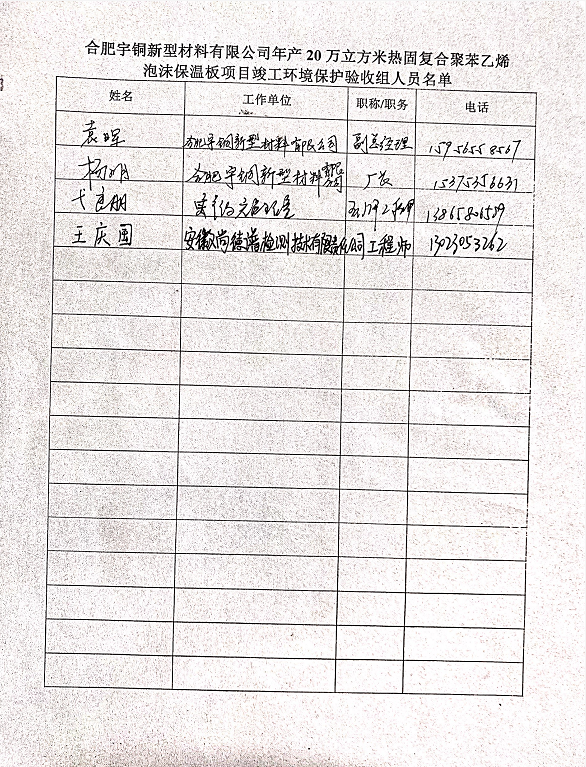 合肥宇铜新型材料有限公司年产 20 万立方米热固复合聚苯乙烯
泡沫保温板项目竣工环境保护验收组人员名单
姓名 工作单位 职称/职务 电话
袁晖 合肥宇铜新型材料有限公司 副总经理 15956558567
杨明 合肥宇铜新型材料有限公司 厂长 15375356631
弋良朋 13865806529
王庆国 安徽尚德谱检测技术有限责任公司 工程师 13023053262